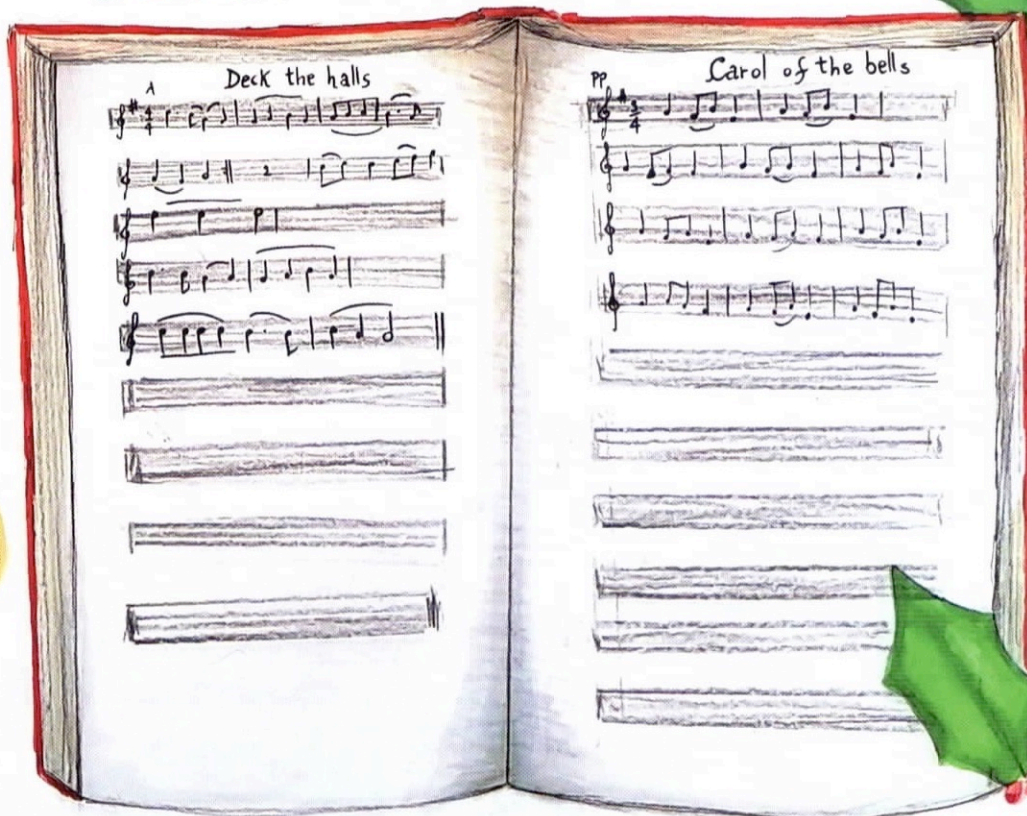 Deck the halls
A
4
4
Carol of the bells
PP
3
4